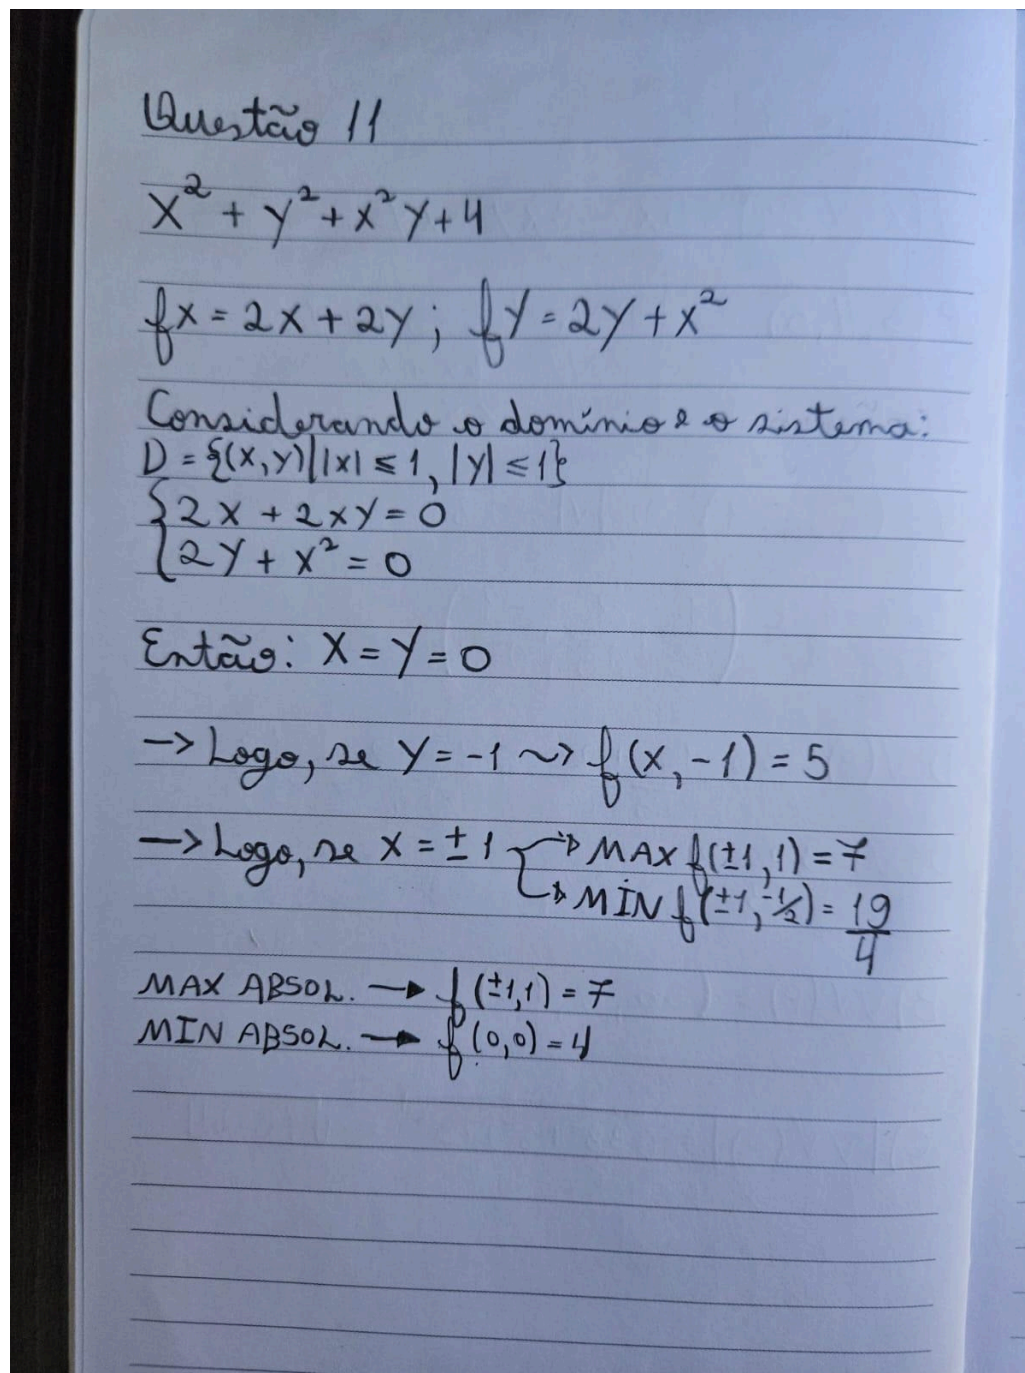 Questão 11
x² + y² + x²y + 4
fx = 2x + 2y ; fy = 2y + x²
Considerando o domínio e o sistema:
D = {(x,y) | |x| ≤ 1, |y| ≤ 1}
{ 2x + 2xy = 0
{ 2y + x² = 0
Então: x = y = 0
-> Logo, se y = -1 ~> f(x, -1) = 5
-> Logo, se x = ± 1 -> MAX f(±1, 1) = 7
-> MÍN f(±1, -1/2) = 19/4
MAX ABSOL. -> f(±1, 1) = 7
MIN ABSOL. -> f(0,0) = 4